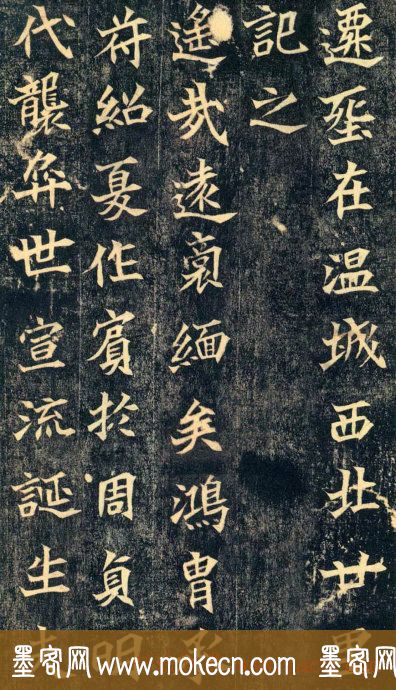 遷葬在温城西北廿里
記之
遙哉遠裔緬矣鴻胄承
苻紹夏作賓於周貞明
代襲弈世宣流誕生
墨客网 www.mokecn.com 墨客网